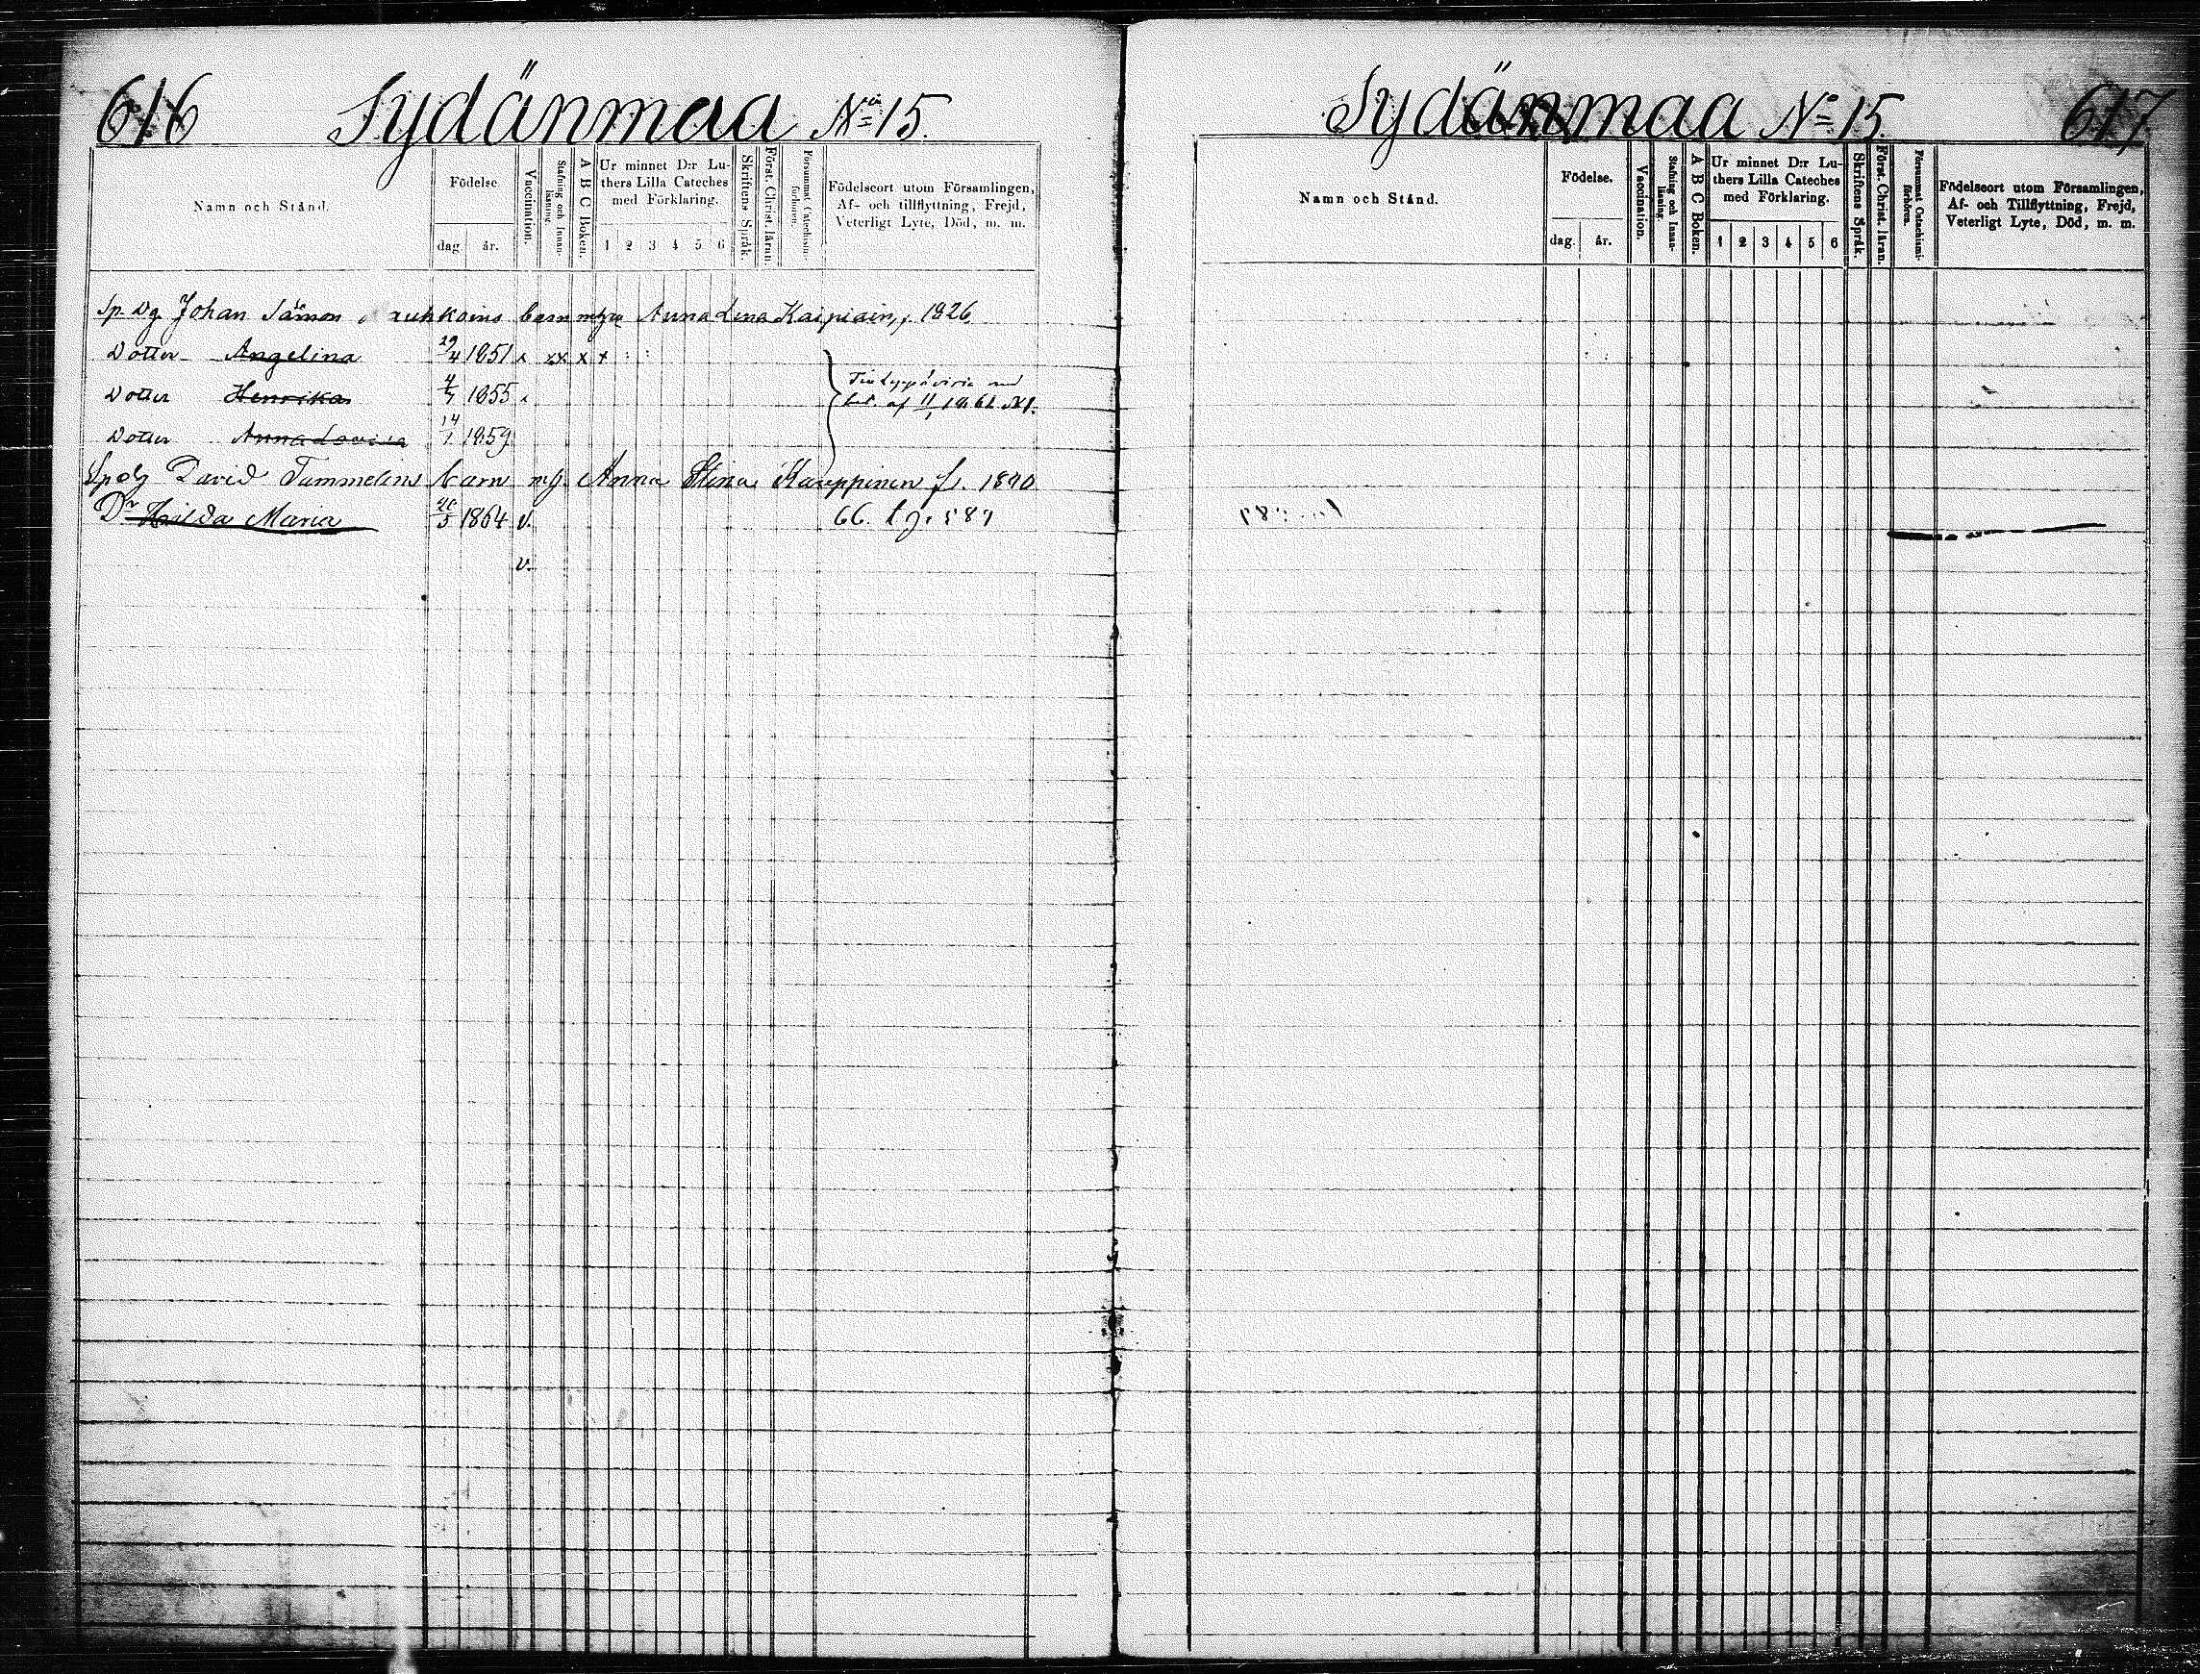 616 Sydänmaa No 15.
Namn och Stånd.
Födelse.
dag. år.
Vaccination.
Stafning och Innanläsning.
A B C Boken.
Ur minnet D:r Luthers Lilla Cateches med Förklaring.
1 2 3 4 5 6
Skriftens Språk.
Först. Christ. läran.
Försummat Catechismi-förhören.
Födelseort utom Församlingen,
Af- och tillflyttning, Frejd,
Veterligt Lyte, Död, m. m.
Sp. Dg Johan barn Anna Lena 1826
Dotter Angelina 29/4 1851 x xx x x
Dotter Henrika 4/7 1855
af 11/1 1861 N 1.
Dotter Anna Lovisa 14/1 1859
Spdg David Tammelins barn m. Anna Stina Kauppinen f. 1840
Dr Hilda Maria 1864 v. 66.
v.
Sydänmaa No 15. 617
Namn och Stånd.
Födelse.
dag. år.
Vaccination.
Stafning och Innanläsning.
A B C Boken.
Ur minnet D:r Luthers Lilla Cateches med Förklaring.
1 2 3 4 5 6
Skriftens Språk.
Först. Christ. läran.
Försummat Catechismi-förhören.
Födelseort utom Församlingen,
Af- och Tillflyttning, Frejd,
Veterligt Lyte, Död, m. m.